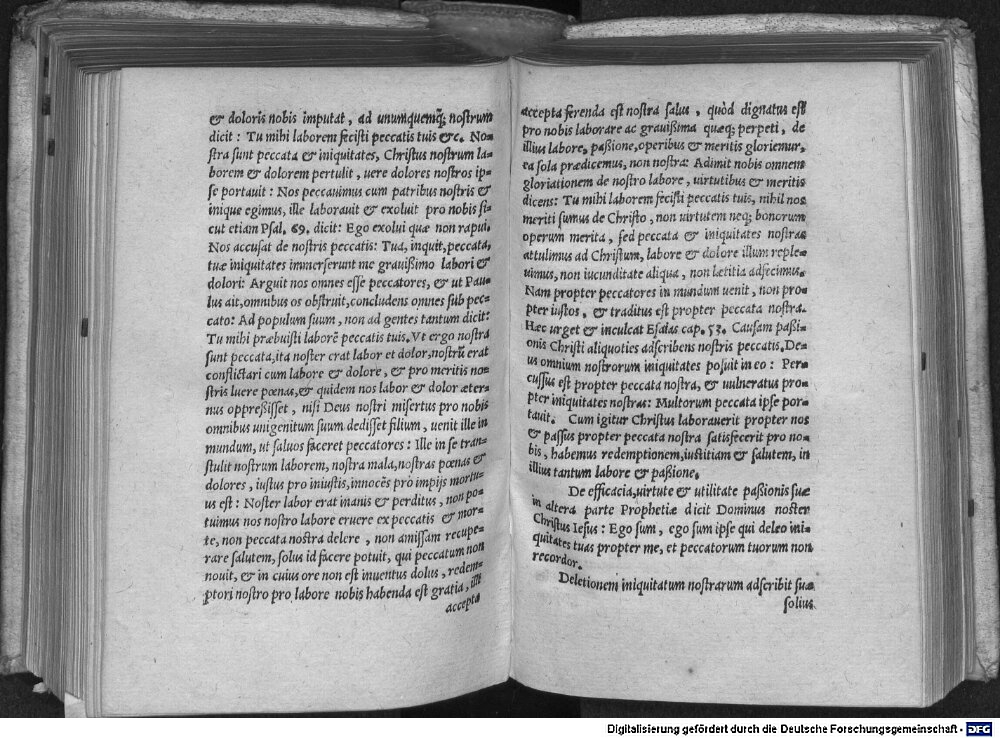 & doloris nobis imputat, ad unumquemq; nostrum
dicit: Tu mihi laborem fecisti peccatis tuis &c. No=
stra sunt peccata & iniquitates, Christus nostrum la=
borem & dolorem pertulit, uere dolores nostros ip=
se portauit: Nos peccauimus cum patribus nostris &
inique egimus, ille laborauit & exoluit pro nobis si=
cut etiam Psal. 69. dicit: Ego exolui quæ non rapui.
Nos accusat de nostris peccatis: Tua, inquit, peccata,
tuæ iniquitates immerserunt me grauißimo labori &
dolori: Arguit nos omnes esse peccatores, & ut Pau=
lus ait, omnibus os obstruit, concludens omnes sub pec=
cato: Ad populum suum, non ad gentes tantum dicit:
Tu mihi præbuisti laborē peccatis tuis. Vt ergo nostra
sunt peccata, ita noster erat labor et dolor, nostrū erat
conflictari cum labore & dolore, & pro meritis no=
stris luere pœnas, & quidem nos labor & dolor æter=
nus oppreßisset, nisi Deus nostri misertus pro nobis
omnibus unigenitum suum dedisset filium, uenit ille in
mundum, ut saluos faceret peccatores: Ille in se tran=
stulit nostrum laborem, nostra mala, nostras pœnas &
dolores, iustus pro iniustis, innocēs pro impijs mortu=
us est: Noster labor erat inanis & perditus, non po=
tuimus nos nostro labore eruere ex peccatis & mor=
te, non peccata nostra delere, non amissam recupe=
rare salutem, solus id facere potuit, qui peccatum non
nouit, & in cuius ore non est inuentus dolus, redem=
ptori nostro pro labore nobis habenda est gratia, illi
accepta
accepta ferenda est nostra salus, quòd dignatus est
pro nobis laborare ac grauißima quæq; perpeti, de
illius labore, paßione, operibus & meritis gloriemur,
ea sola prædicemus, non nostra: Adimit nobis omnem
gloriationem de nostro labore, uirtutibus & meritis
dicens: Tu mihi laborem fecisti peccatis tuis, nihil nos
meriti sumus de Christo, non uirtutem neq; bonorum
operum merita, sed peccata & iniquitates nostras
attulimus ad Christum, labore & dolore illum reple=
uimus, non iucunditate aliqua, non lætitia adfecimus.
Nam propter peccatores in mundum uenit, non pro=
pter iustos, & traditus est propter peccata nostra.
Hæc urget & inculcat Esaias cap. 53. Causam paßi=
onis Christi aliquoties adscribens nostris peccatis. De=
us omnium nostrorum iniquitates posuit in eo: Per=
cussus est propter peccata nostra, & uulneratus pro=
pter iniquitates nostras: Multorum peccata ipse por=
tauit. Cum igitur Christus laborauerit propter nos
& passus propter peccata nostra satisfecerit pro no=
bis, habemus redemptionem, iustitiam & salutem, in
illius tantum labore & paßione.
De efficacia, uirtute & utilitate paßionis suæ
in altera parte Prophetiæ dicit Dominus noster
Christus Iesus: Ego sum, ego sum ipse qui deleo ini=
quitates tuas propter me, et peccatorum tuorum non
recordor.
Deletionem iniquitatum nostrarum adscribit suæ
solius
Digitalisierung gefördert durch die Deutsche Forschungsgemeinschaft - DFG